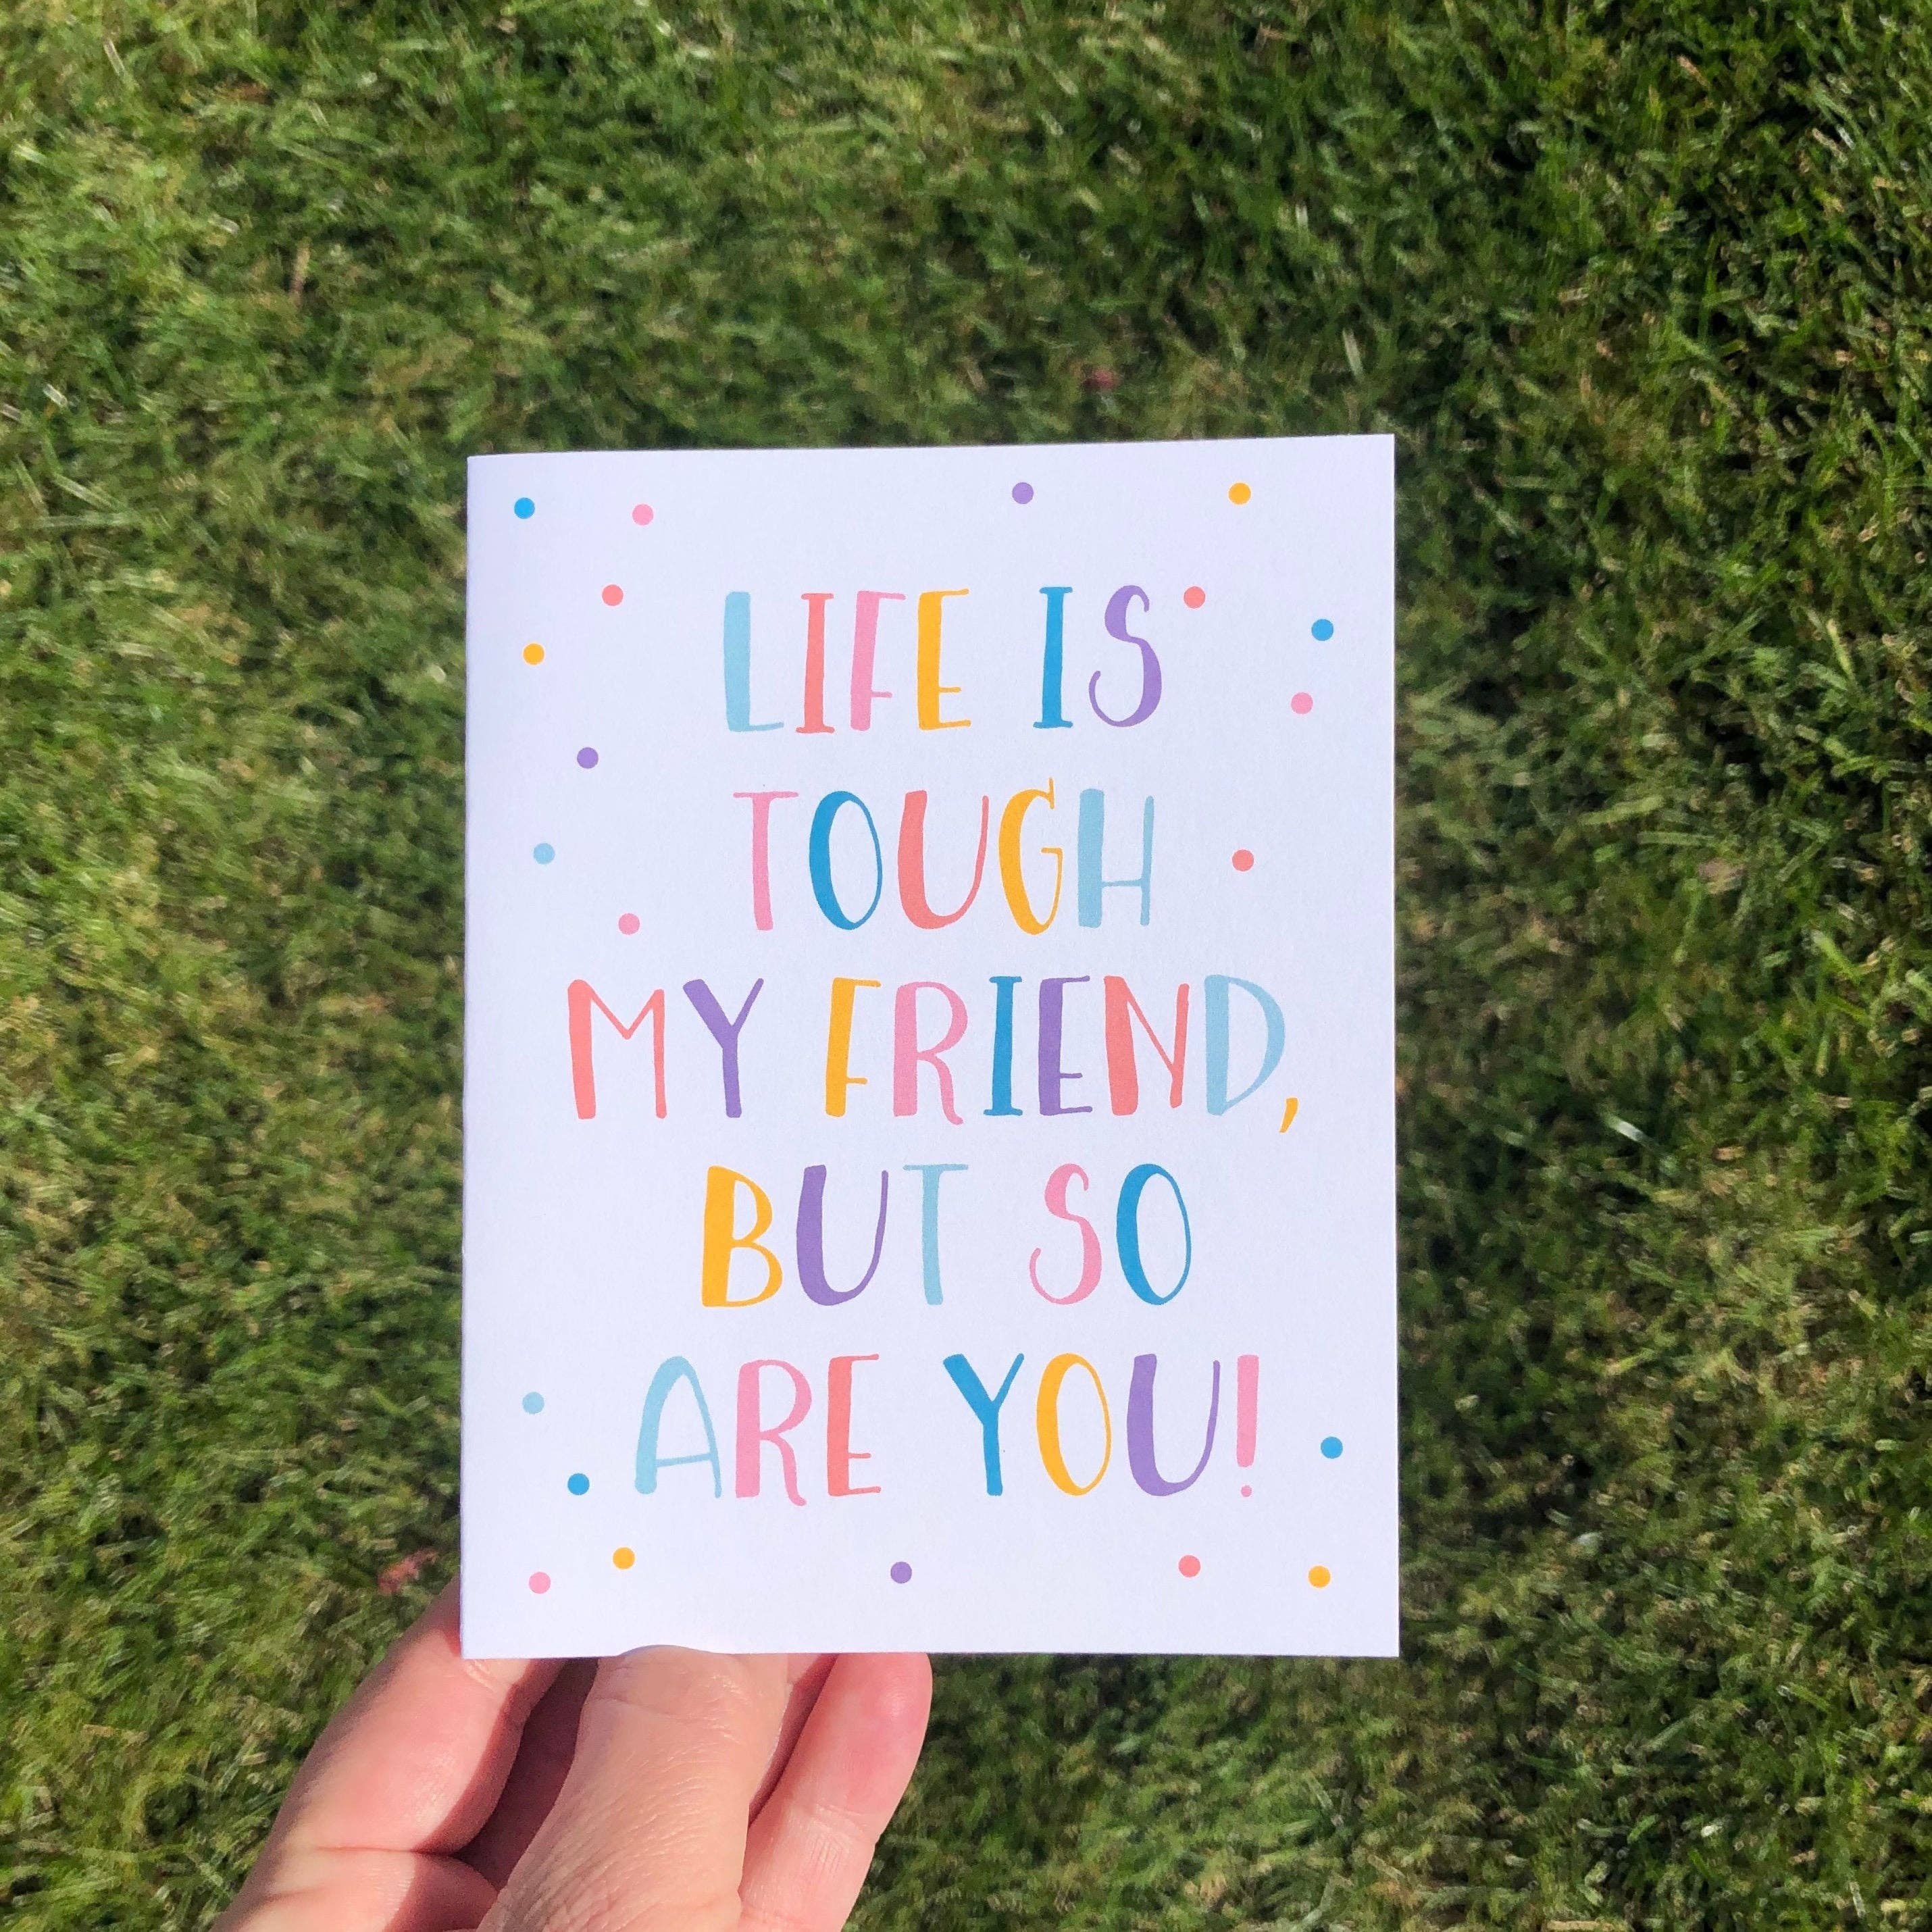 LIFE IS
TOUGH
MY FRIEND,
BUT SO
ARE YOU!